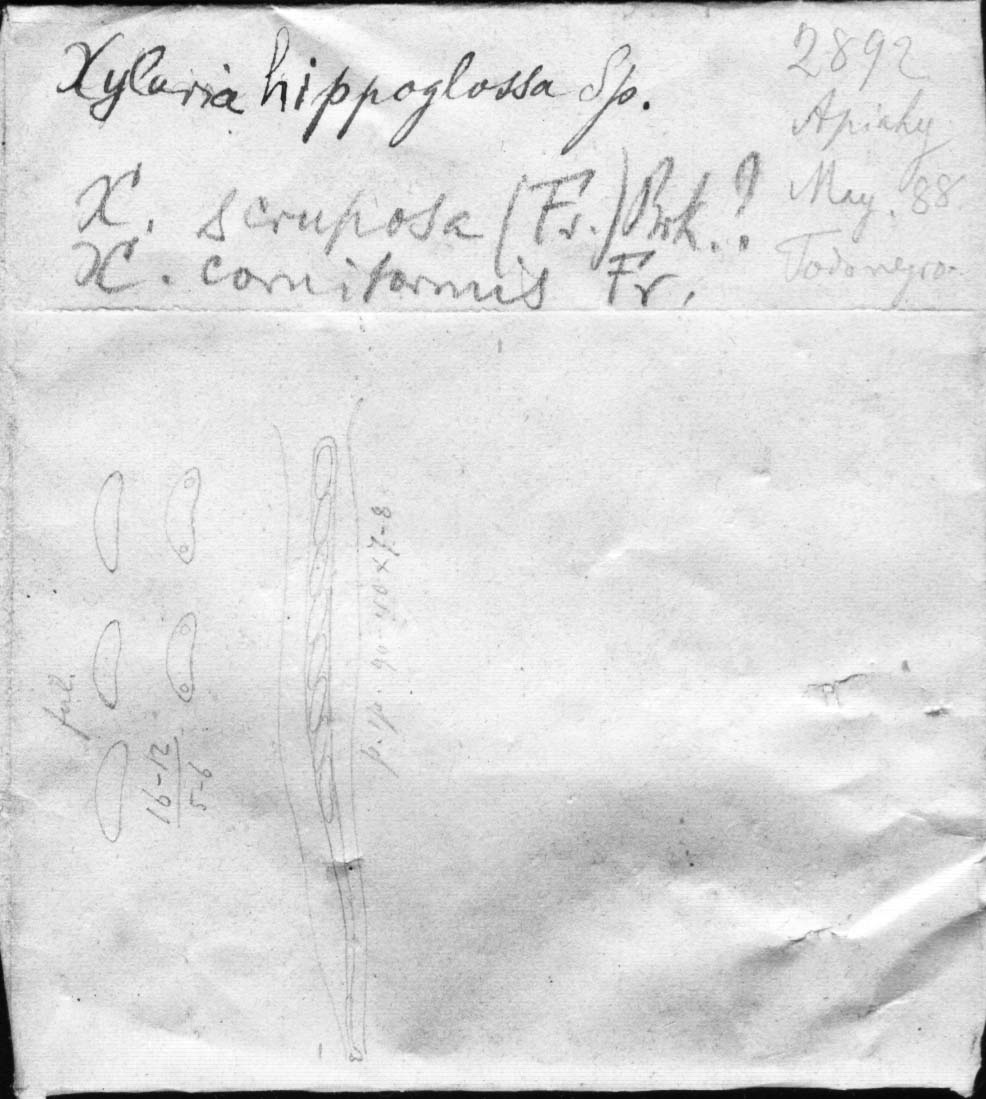 Xylaria hippoglossa Sp.
X. scruposa (Fr.) Brk.?
X. corniformis Fr.
2892
Apiahy
May. 88
Todo negro.
ful.
16-12
5-6
p. sp. 90-40x7-8